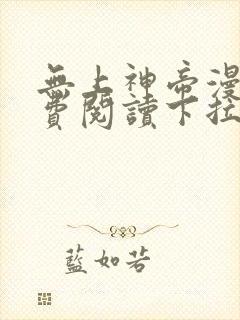 無上神帝漫
費閱讀下拉
藍如若